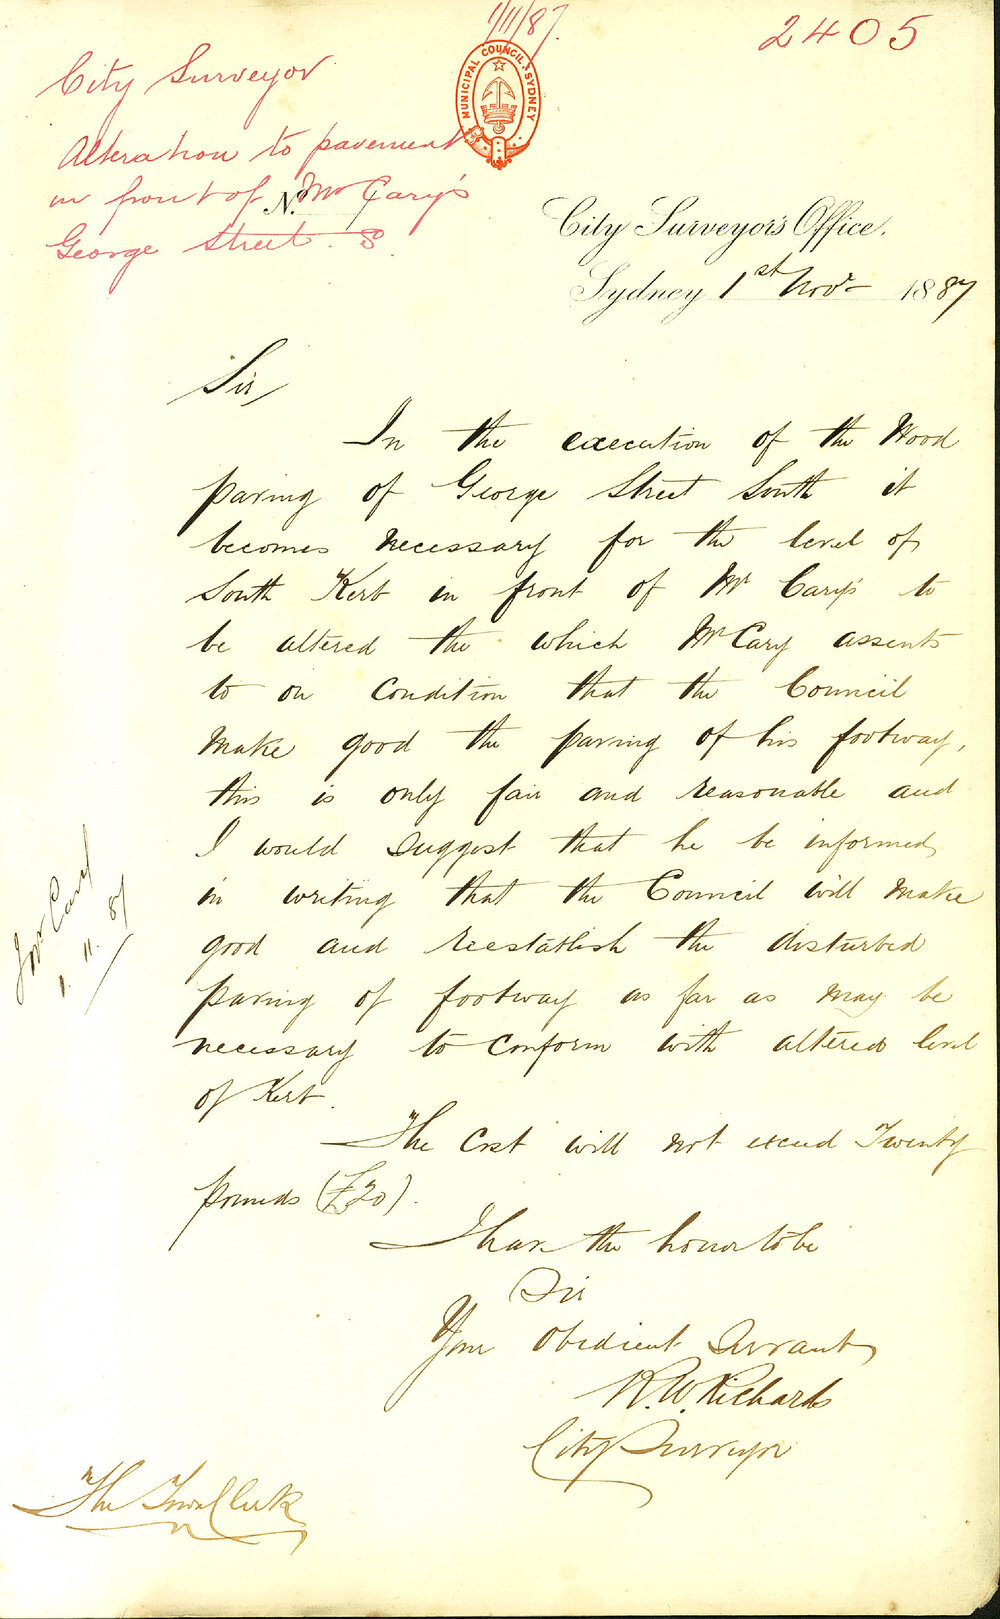 1/11/87.
2405
City Surveyor
Alteration to pavement
in front of Mr Cary's
George Street S.
MUNICIPAL COUNCIL, SYDNEY
No.
City Surveyor's Office.
Sydney 1st Novr 1887
Sir,
In the execution of the Wood
paving of George Street South it
becomes necessary for the level of
South Kerb in front of Mr Cary's to
be altered the which Mr Cary assents
to on condition that the Council
make good the paving of his footway,
this is only fair and reasonable and
I would suggest that he be informed
in writing that the Council will make
good and reestablish the disturbed
paving of footway as far as may be
necessary to conform with altered level
of Kerb.
The cost will not exceed Twenty
pounds (£20).
I have the honor to be
Sir
Your Obedient Servant
R.W. Richards
City Surveyor
The Town Clerk
Cary
1. 11. 87